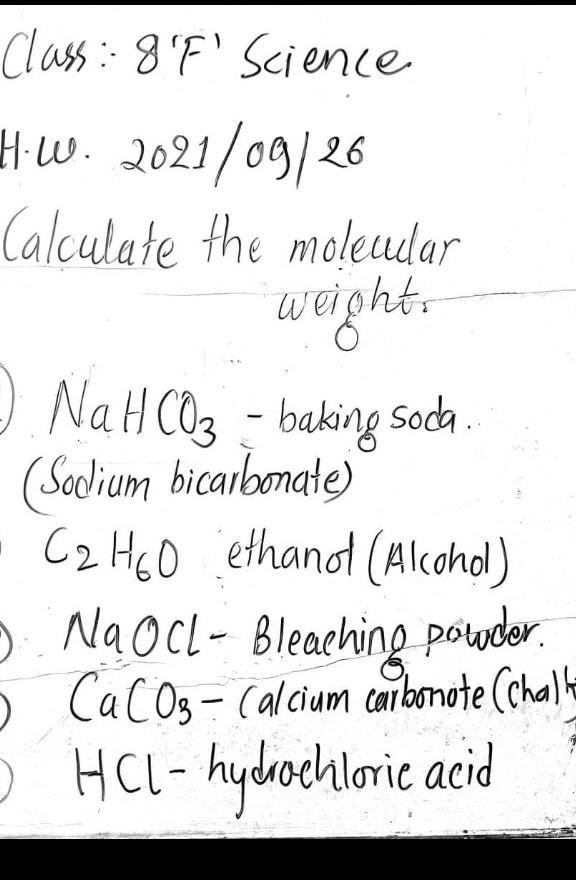 Class:- 8 'F' Science
H.W. 2021/09/26
Calculate the molecular
weight.
NaHCO3 - baking soda.
(Sodium bicarbonate)
C2H6O ethanol (Alcohol)
NaOCl - Bleaching powder.
CaCO3 - Calcium carbonate (Chalk
HCl - hydrochloric acid